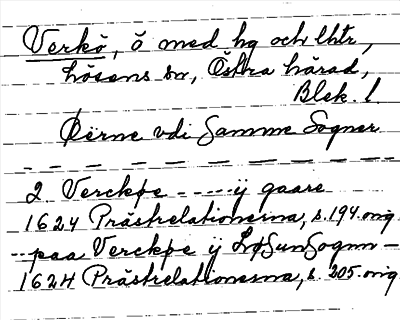 Verkö, ö med hg och lhtr,
hösens sn, Östra härad,
Blek. l.
Øerne vdi Samme Sogner
2 Verckøe - - - - - ij gaare
1624 Prästrelationerna, s. 194. orig
- - paa Verckøe ij LøSunSognn -
1624 Prästrelationerna, s. 205. orig